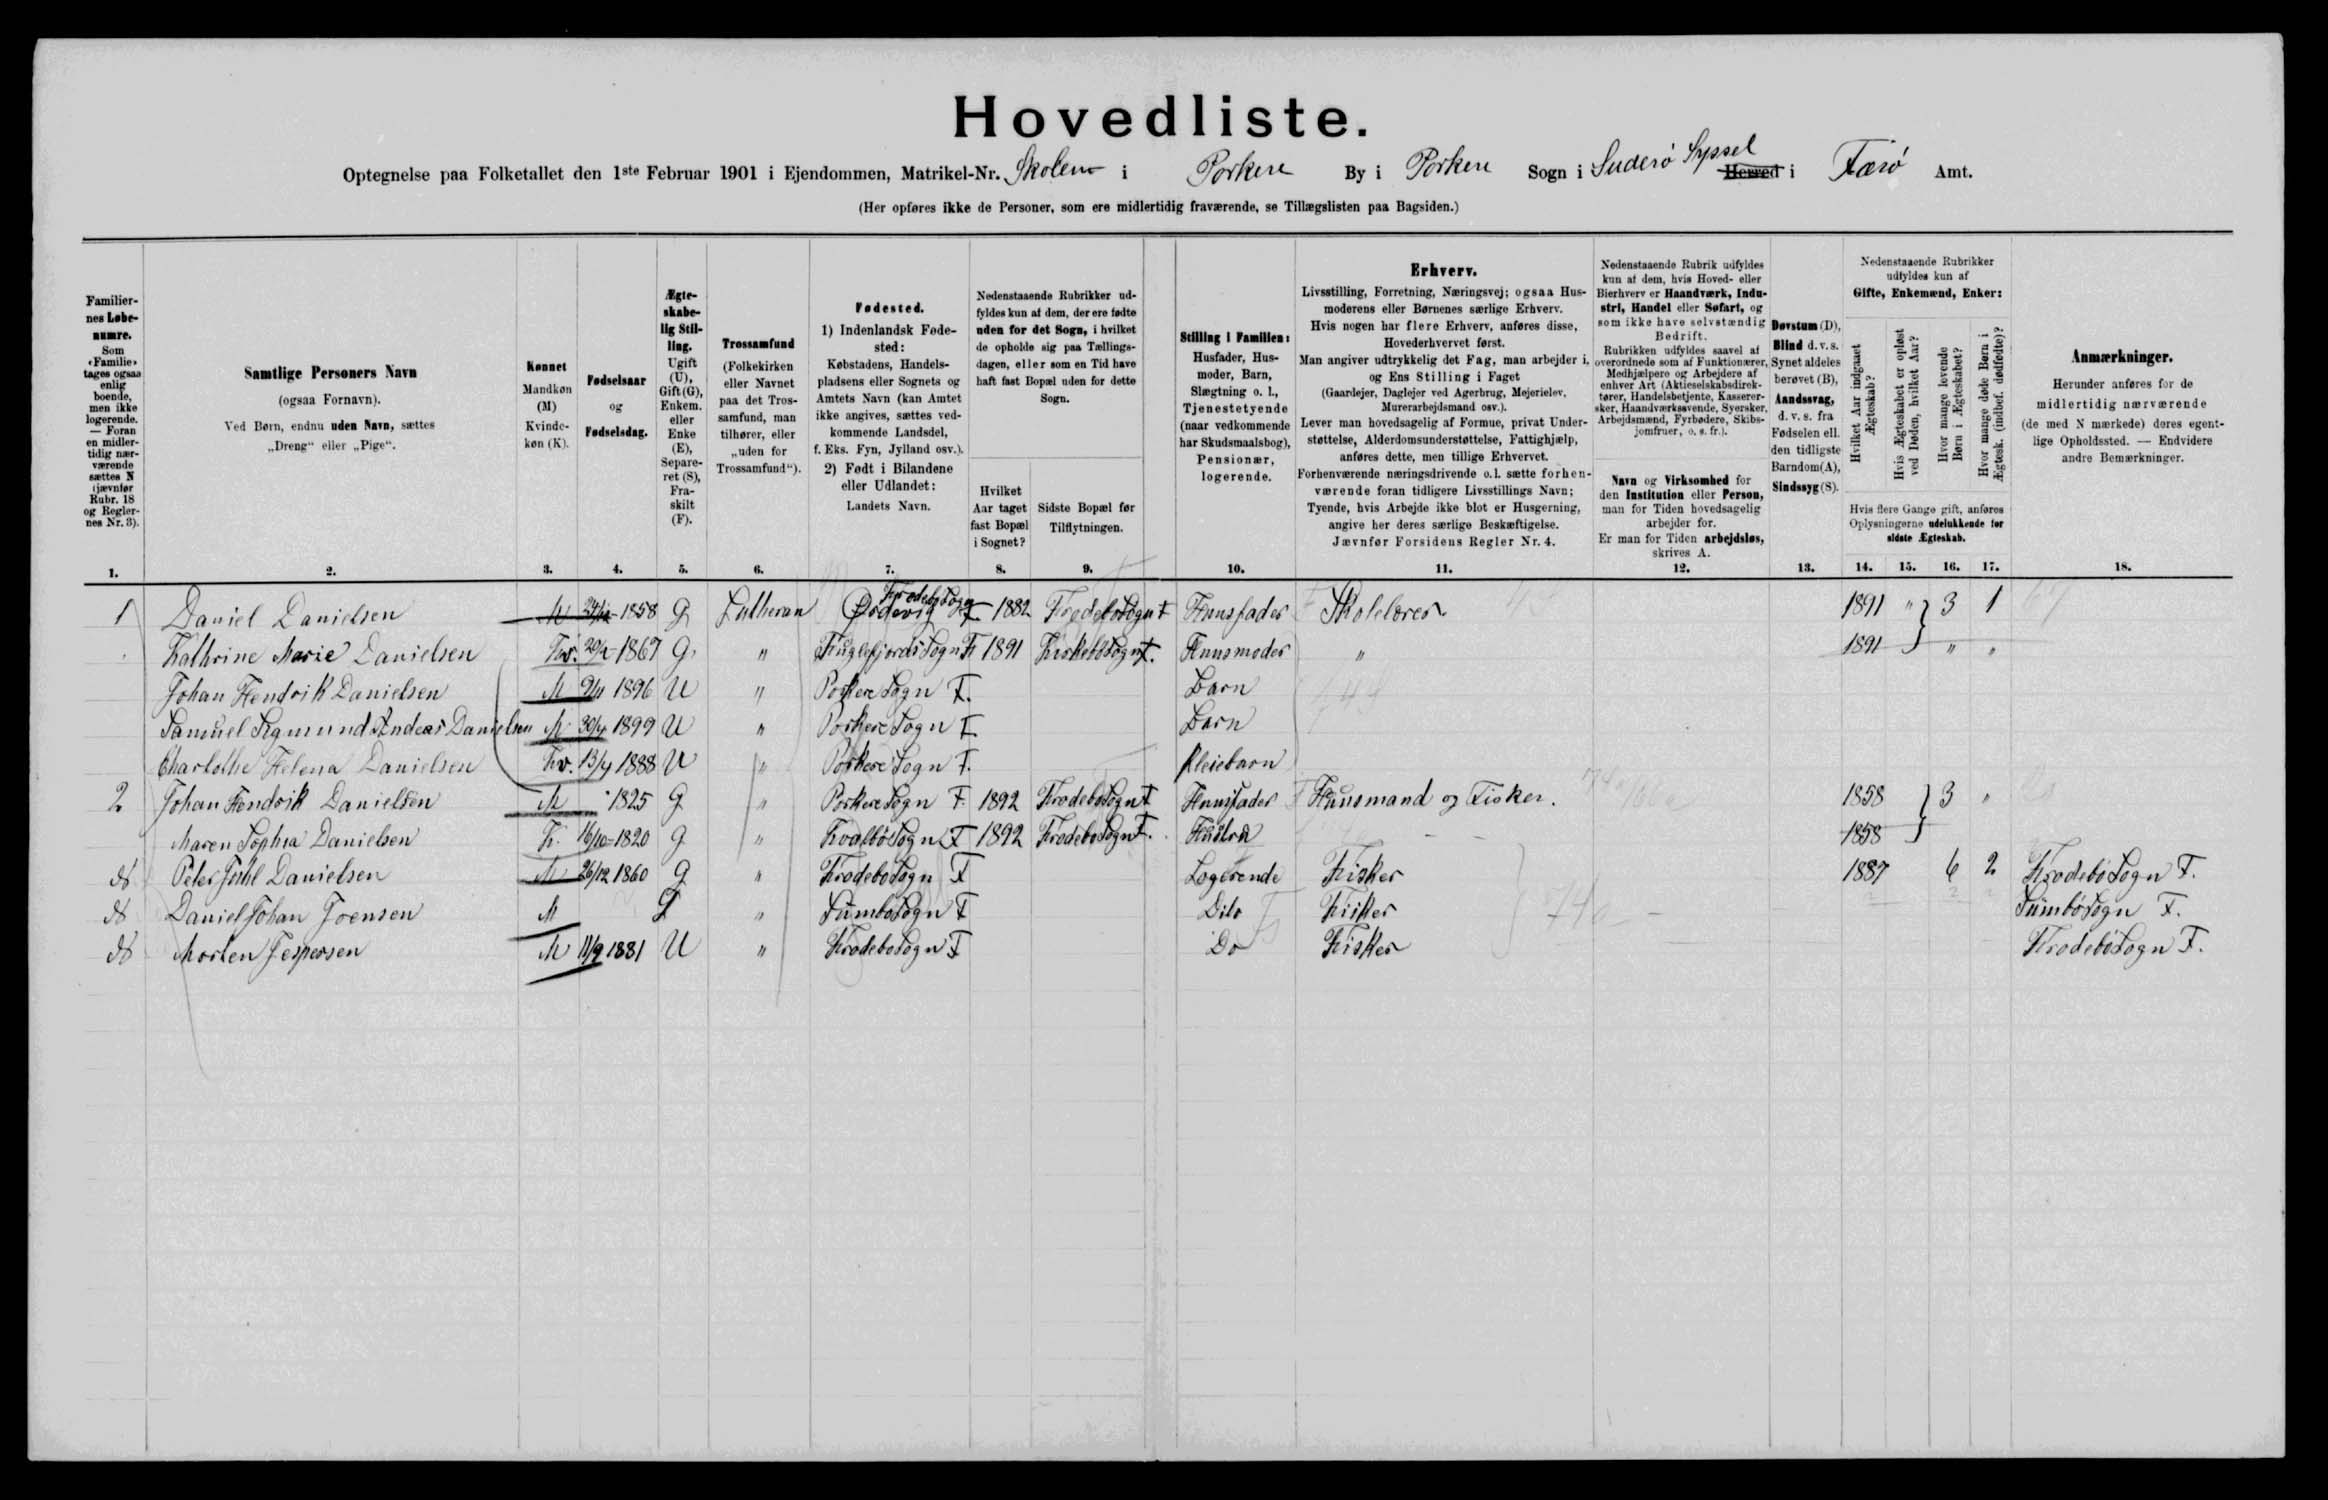 Hovedliste.
Optegnelse paa Folketallet den 1ste Februar 1901 i Ejendommen, Matrikel-Nr. Skolen i Porkere By i Porkere Sogn i Suderø Syssel Herred i Færø Amt.
(Her opføres ikke de Personer, som ere midlertidig fraværende, se Tillægslisten paa Bagsiden.)
Familiernes Løbenumre.
Som «Familie» tages ogsaa enlig boende, men ikke logerende. — Foran en midlertidig nærværende sættes N (jævnfør Rubr. 18 og Reglernes Nr. 3).
Samtlige Personers Navn
(ogsaa Fornavn).
Ved Børn, endnu uden Navn, sættes
„Dreng“ eller „Pige“.
Kønnet
Mandkøn (M)
Kvindekøn (K).
Fødselsaar
og
Fødselsdag.
Ægteskabelig Stilling.
Ugift (U), Gift (G), Enkem. eller Enke (E), Separeret (S), Fraskilt (F).
Trossamfund
(Folkekirken eller Navnet paa det Trossamfund, man tilhører, eller „uden for Trossamfund“).
Fødested.
1) Indenlandsk Fødested:
Købstadens, Handelspladsens eller Sognets og Amtets Navn (kan Amtet ikke angives, sættes vedkommende Landsdel, f. Eks. Fyn, Jylland osv.).
2) Født i Bilandene eller Udlandet:
Landets Navn.
Nedenstaaende Rubrikker udfyldes kun af dem, der ere fødte uden for det Sogn, i hvilket de opholde sig paa Tællingsdagen, eller som en Tid have haft fast Bopæl uden for dette Sogn.
Hvilket Aar taget fast Bopæl i Sognet?
Sidste Bopæl før Tilflytningen.
Stilling i Familien:
Husfader, Husmoder, Barn, Slægtning o. l., Tjenestetyende (naar vedkommende har Skudsmaalsbog), Pensionær, logerende.
Erhverv.
Livsstilling, Forretning, Næringsvej; ogsaa Husmoderens eller Børnenes særlige Erhverv.
Hvis nogen har flere Erhverv, anføres disse, Hovederhvervet først.
Man angiver udtrykkelig det Fag, man arbejder i, og Ens Stilling i Faget
(Gaardejer, Daglejer ved Agerbrug, Mejerielev, Murerarbejdsmand osv.).
Lever man hovedsagelig af Formue, privat Understøttelse, Alderdomsunderstøttelse, Fattighjælp, anføres dette, men tillige Erhvervet.
Forhenværende næringsdrivende o. l. sætte forhenværende foran tidligere Livsstillings Navn;
Tyende, hvis Arbejde ikke blot er Husgerning, angive her deres særlige Beskæftigelse.
Jævnfør Forsidens Regler Nr. 4.
Nedenstaaende Rubrik udfyldes kun af dem, hvis Hoved- eller Bierhverv er Haandværk, Industri, Handel eller Søfart, og som ikke have selvstændig Bedrift.
Rubrikken udfyldes saavel af overordnede som af Funktionærer, Medhjælpere og Arbejdere af enhver Art (Aktieselskabsdirektører, Handelsbetjente, Kasserersker, Haandværkssvende, Syersker, Arbejdsmænd, Fyrbødere, Skibsjomfruer, o. s. fr.).
Navn og Virksomhed for den Institution eller Person, man for Tiden hovedsagelig arbejder for.
Er man for Tiden arbejdsløs, skrives A.
Døvstum (D), Blind d. v. s. Synet aldeles berøvet (B), Aandssvag, d. v. s. fra Fødselen ell. den tidligste Barndom (A), Sindssyg (S).
Nedenstaaende Rubrikker udfyldes kun af
Gifte, Enkemænd, Enker:
Hvilket Aar indgaaet Ægteskab?
Hvis Ægteskabet er opløst ved Døden, hvilket Aar?
Hvor mange levende Børn i Ægteskabet?
Hvor mange døde Børn i Ægtesk. (indbef. dødfødte)?
Hvis flere Gange gift, anføres Oplysningerne udelukkende for sidste Ægteskab.
Anmærkninger.
Herunder anføres for de midlertidig nærværende (de med N mærkede) deres egentlige Opholdssted. — Endvidere andre Bemærkninger.
1. 2. 3. 4. 5. 6. 7. 8. 9. 10. 11. 12. 13. 14. 15. 16. 17. 18.
1 Daniel Danielsen M 1858 G Lutheran Frodebø Sogn Ørdevig F 1882 Frodebø Sogn F Huusfader Skolelærer 1891 " 3 1
Kathrine Marie Danielsen Kv. 1867 G " Fuglefjords Sogn F 1891 F. Huusmoder " 1891 " "
Johan Hendrik Danielsen M 9/11 1896 U " Porkere Sogn F. Barn
Samuel Sigmund Andeas Danielsen M 30/4 1899 U " Porkere Sogn F Barn
Charlothe Helena Danielsen Kv. 13/4 1888 U " Porkere Sogn F. Pleiebarn
2 Johan Hendrik Danielsen M " 1825 G " Porkere Sogn F. 1892 Frodebø Sogn F Huusfader Huusmand og Fisker. 1858 3 "
Maren Sophia Danielsen K. 16/10 1820 G " Hvalbø Sogn F 1892 Frodebø Sogn F. Hustru 1858
Peter Danielsen M 26/12 1860 G " Frodebø Sogn F Logerende Fisker 1887 6 2 Frodebø Sogn F.
Daniel Johan Joensen M G " Sumbø Sogn F Dito Fisker Sumbø Sogn F.
Morten Jespersen M 11/9 1881 U " Frodebø Sogn F Do Fisker Frodebø Sogn F.